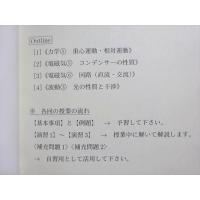 Outline
[1]《力学① 重心運動・相対運動》
[2]《電磁気① コンデンサーの性質》
[3]《電磁気② 回路（直流・交流）》
[4]《波動① 光の性質と干渉》
※ 各回の授業の流れ
【基本事項】と【例題】 → 予習して下さい。
【演習1】～【演習3】 → 授業中に解いて解説します。
（補充問題1）（補充問題2）
→ 自習用として活用して下さい。